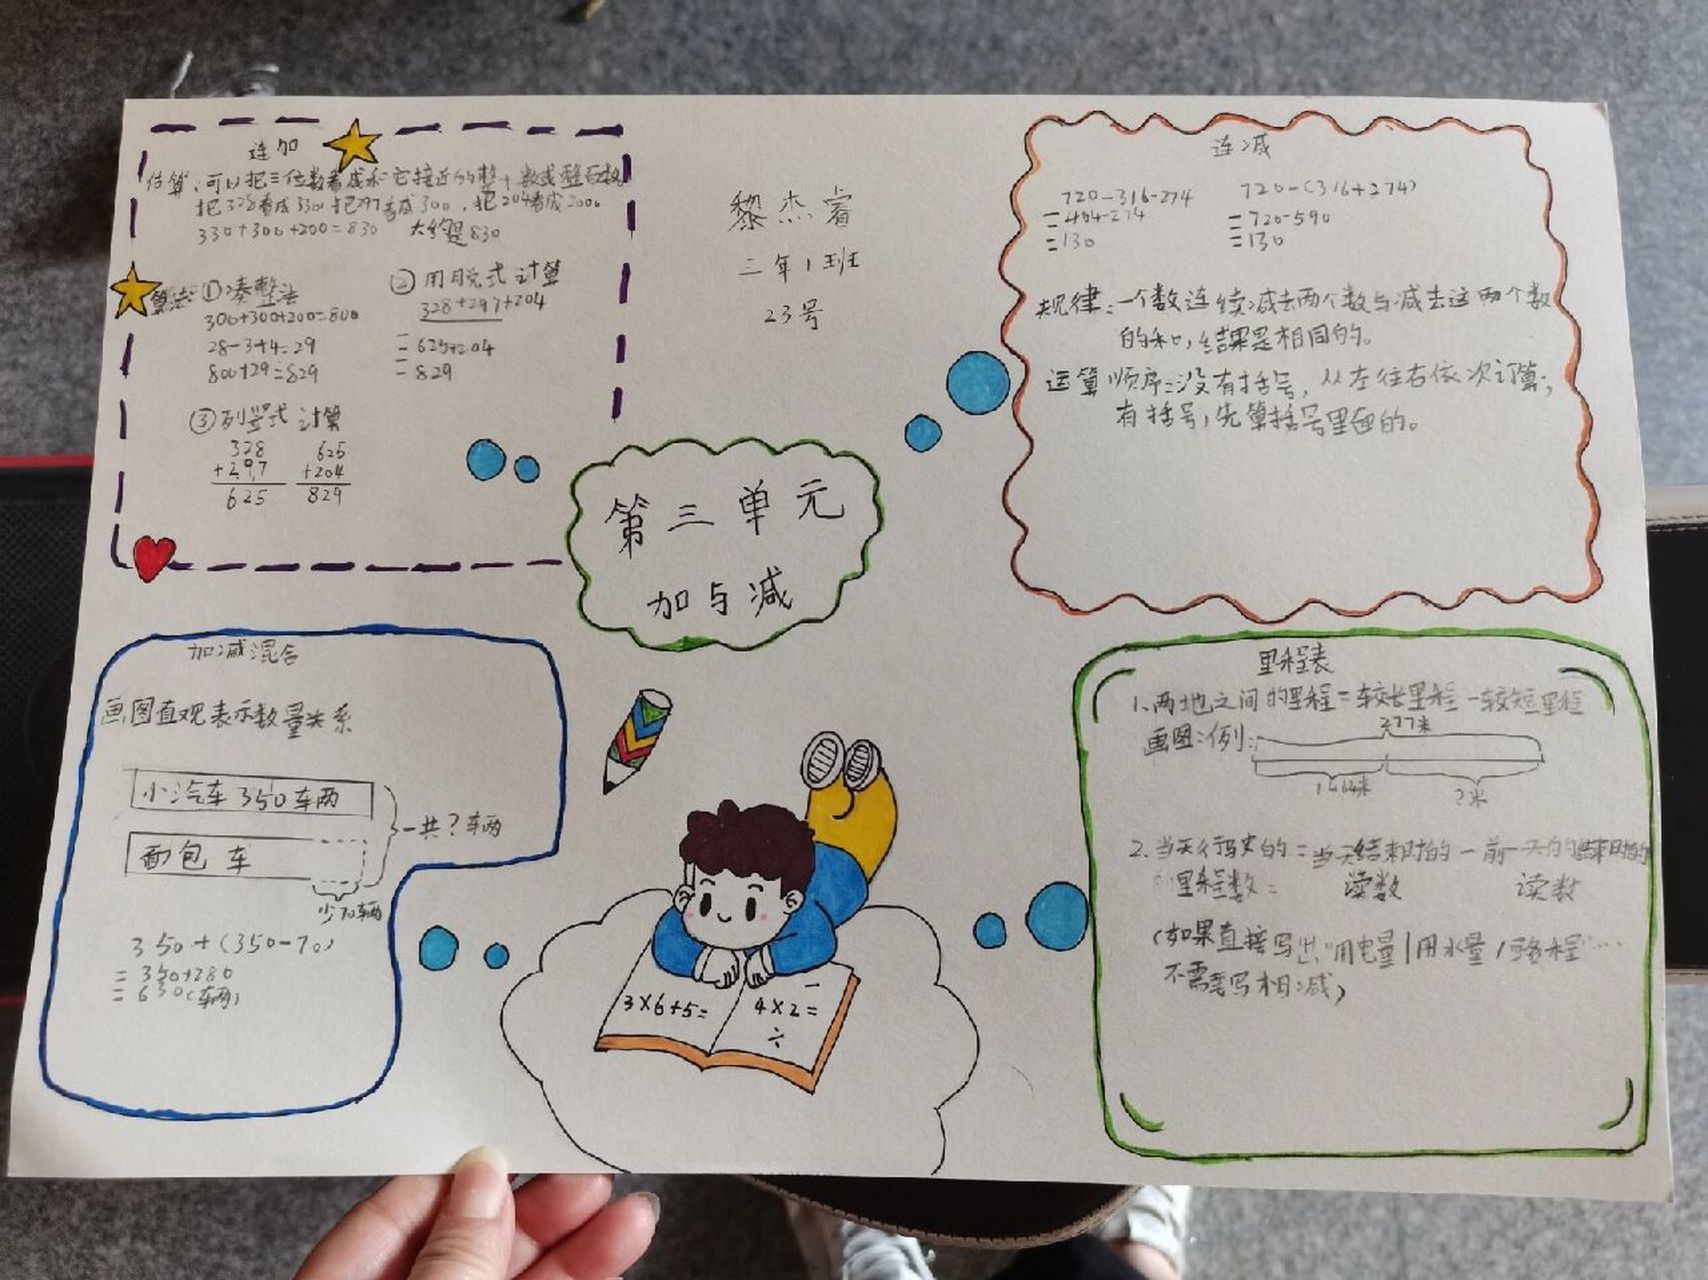 连加
估算:可以把三位数看成和它接近的整十数或整百数
把328看成330,把297看成300,把204看成200。
330+300+200=830 大约是830
算法:①凑整法
300+300+200=800
28-3+4=29
800+29=829
②用脱式计算
328+297+204
=625+204
=829
③列竖式计算
328
+297
625
625
+204
829
黎杰睿
三年1班
23号
连减
720-316-274
=404-274
=130
720-(316+274)
=720-590
=130
规律:一个数连续减去两个数与减去这两个数
的和,结果是相同的。
运算顺序:没有括号,从左往右依次计算;
有括号,先算括号里面的。
第三单元
加与减
加减混合
画图直观表示数量关系
小汽车 350车两
面包车
一共?车两
少70车两
350+(350-70)
=350+280
=630(车两)
3×6+5=
4×2=
÷
里程表
1.两地之间的里程=较长里程-较短里程
画图:例:
277米
?米
2.当天行驶的=当天结束时的-前一天的结束时的
里程数= 读数 读数
(如果直接写出"用电量/用水量/路程"…
不需要写相减)